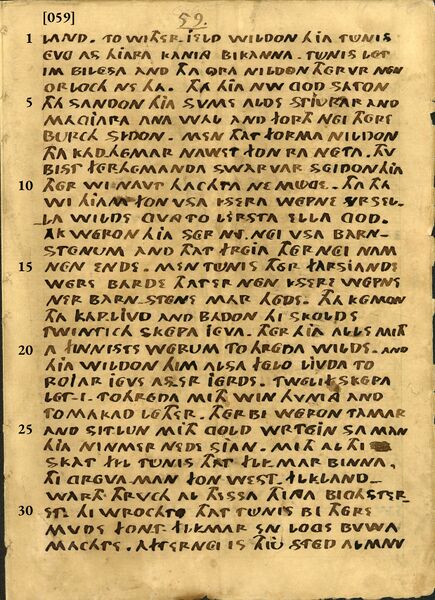 [059]
59.
1 LAND. TO WITHER JELD WILDON HJA TUNIS
EVG AS HJARA KANING BIKANNA. TUNIS LET
IM BILESA AND THA ORA NILDON THERVR NEN
ORLOCH NE HA. THA HJA NW GOD SATON
5 THA SANDON HJA SVME ALDE STJURAR AND
MAGJARA ANA WAL AND FORTH NEI THERE
BURCH SIDON. MEN THAT FORMA NILDON
THA KADHEMAR NAWET FON RA NETA. THV
BIST FERHEMANDA SWARVAR SEIDON HJA
10 THER WI NAVT HACHTA NE MUGE. THA THA
WI HJAM FON VSA ISERA WEPNE VRSEL-
LA WILDE GVNG TO LERSTA ELLA GOD.
AK WERON HJA SER NY NEI VSA BARN-
STENUM AND THAT FREJA THER NEI NAM
15 NEN ENDE. MEN TUNIS THER FARSJANDE
WERE BARDE THAT ER NEN ISERE WEPNE
NER BARNSTENE MAR HEDE. THA KEMON
THA KAPLJVD AND BADON HI SKOLDE
TWINTICH SKEPA JEVA. THER HJA ALLE MITH
20 THA FINNISTE WERUM TO HREDA WILDE. AND
HJA WILDON HIM ALSA FELO LJVDA TO
ROJAR JEVA AS ER JERDE. TWELIF SKEPA
LET-I TO HREDA MITH WIN HVNING AND
TOMAKAD LETHER. THER BI WERON TAMAR
25 AND SITLUN MITH GOLD WRTEIN SA MAN
HJA NINMER NEDE SJAN. MITH AL THI
SKAT FYL TUNIS THAT FLYMAR BINNA.
THI GREVAMAN FON WEST FLYLAND
WARTH THRVCH AL THESSA THINGA BIGASTER-
30 ET. HI WROCHTE THAT TUNIS BI THERE
MVDE FON-T FLYMAR EN LOGE BVWA
MACHTE. AFTERNEI IS THJU STED ALMAN